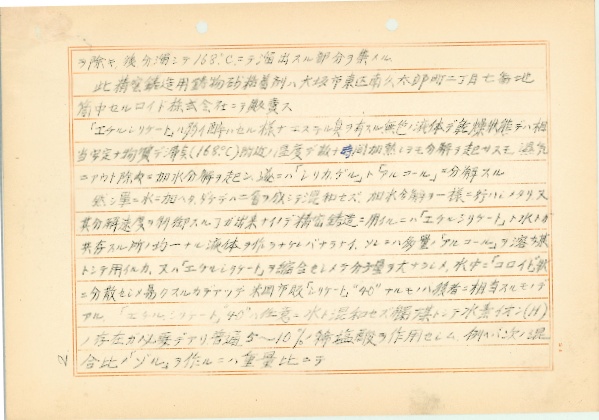 ヲ除キ、後分溜シテ168°Cニテ溜出スル部分ヲ集ム
此精密鋳造用鋳物砂粘着剤ハ大阪市東区南久太郎町二丁目七番地
筒中セルロイド株式会社ニテ販賣ス
「エチルシリケート」ハ 様ナエステル臭ヲ有スル無色ノ液体デ乾燥状態デハ相
当安定ナ物質デ沸点(168°C)附近ノ温度デ数十時間加熱シテモ分解ヲ起サズモ、湿気
ニアウト除々ニ加水分解ヲ起シ、遂ニハ「シリカ、ゲル」ト「アルコール」ニ分解スル
然シ単ニ水ニ加ヘタダケデハ二層ヲ成シテ混和セズ、加水分解ヲ一様ニ行ハシメタリ又
其分解速度ヲ制御スル事ガ出来ナイノデ精密鋳造ニ用イルニハ「エチルシリケート」ト水トガ
共存スル所ノ均一ナル液体ヲ作ラナケレバナラナイ、ソレニハ多量ノ「アルコール」ヲ溶媒
トシテ用イルカ、又ハ「エチルシリケート」ヲ縮合セシメテ分子量ヲ大ナラシメ、水中ニ「コロイド」状
ニ分散セシメ易クスルカデアツテ米国市販「シリケート」"40"ナルモノハ後者ニ相当スルモノデ
アル、「エチルシリケート」"40"ハ任意ニ水ト混和セズ触媒トシテ水素イオン(H)
ノ存在ガ必要デアリ普通5〜10%ノ稀塩酸ヲ作用セシム、例ヘバ次ノ混
合比ノ「ゾル」ヲ作ルニハ重量比ニテ
2